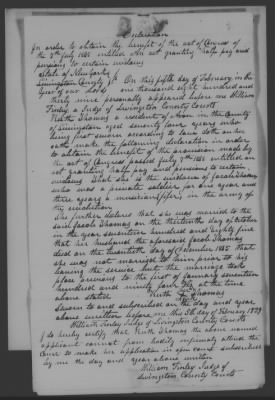 Declaration
In order to obtain the benefit of the act of Congress of
the 7th July 1838 entitled An act granting half pay and
pensions to certain widows
State of New York
Livingston County } On this fifth day of February in the
year of our Lord one thousand eight hundred and
thirty nine personally appeared before me William
Finley a Judge of Livingston County Courts
Ruth Thomas a resident of Avon in the County
of Livingston aged seventy four years who
being first sworn according to law doth on her
oath make the following declaration in order
to obtain the benefit of the provision made by
the act of Congress passed July 7th 1838 entitled an
act granting half pay and pensions to certain
widows. That she is the widow of Jacob Thomas
who was a private soldier for one year and
three years a musician (fifer) in the army of
the revolution
She further declares that she was married to the
said Jacob Thomas on the thirteenth day of October
in the year seventeen hundred and eighty five
that her husband the aforesaid Jacob Thomas
died on the twentieth day of 1835 That
she was not married to him prior to his
leaving the service but the marriage took
place previous to the first of January seventeen
hundred and ninety four viz at the time
above stated Ruth Thomas
Sworn to and subscribed on the day and year
above written before me this 5th day of February 1839
William Finley Judge of Livingston County Courts
I do hereby certify that Ruth Thomas the above named
applicant cannot from bodily infirmity attend the
Court to make her application in open court subscribed
by me the day and year above written
William Finley Judge of
Livingston County Courts